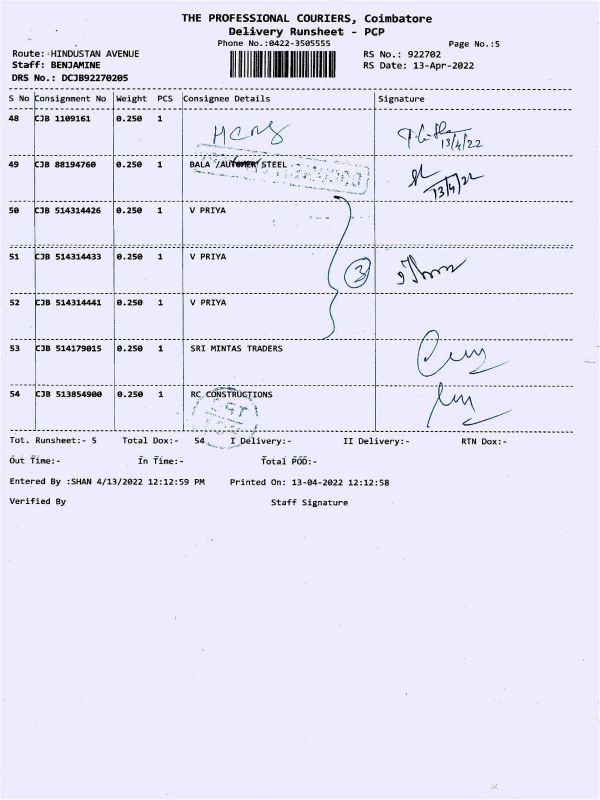 THE PROFESSIONAL COURIERS, Coimbatore
Delivery Runsheet - PCP
Phone No.:0422-3505555 Page No.:5
Route: HINDUSTAN AVENUE RS No.: 922702
Staff: BENJAMINE RS Date: 13-Apr-2022
DRS No.: DCJB92270205
S No Consignment No Weight PCS Consignee Details Signature
48 CJB 1109161 0.250 1
13/4/22
49 CJB 88194760 0.250 1 BALA STEEL
13/4/22
50 CJB 514314426 0.250 1 V PRIYA
51 CJB 514314433 0.250 1 V PRIYA
3
52 CJB 514314441 0.250 1 V PRIYA
53 CJB 514179015 0.250 1 SRI MINTAS TRADERS
54 CJB 513854900 0.250 1 RC CONSTRUCTIONS
Tot. Runsheet:- 5 Total Dox:- 54 I Delivery:- II Delivery:- RTN Dox:-
Out Time:- In Time:- Total POD:-
Entered By :SHAN 4/13/2022 12:12:59 PM Printed On: 13-04-2022 12:12:58
Verified By Staff Signature